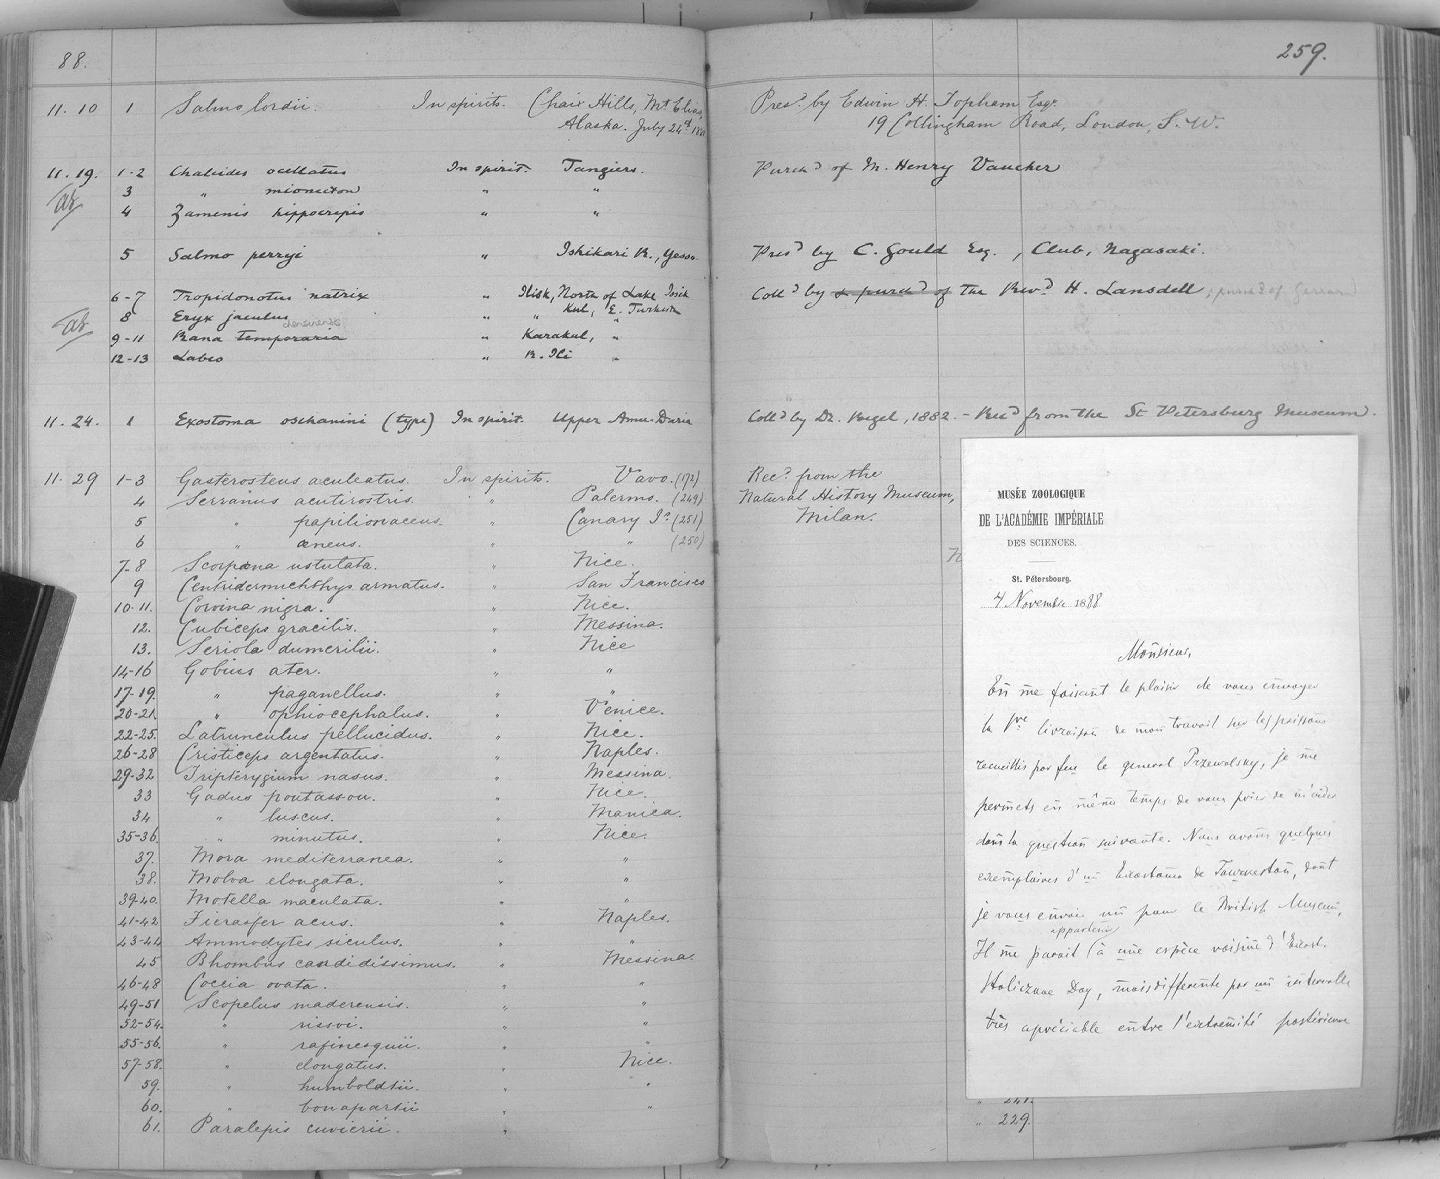 88.
259.
11. 10 1 Salmo lordii. In spirits. Chaix Hills, Mt Elias, Presd. by Edwin H. Topham Esqr.
Alaska. July 24th 1888 19 Collingham Road, London, S.W.
11. 19. 1-2 Chalcides ocellatus In spirit. Tangiers. Purchd of M. Henry Vaucher
3 " mionecton " "
4 Zamenis hippocrepis " "
5 Salmo perryi " Ishikari R., Yesso Presd by C. Gould Esq., Club, Nagasaki.
6-7 Tropidonotus natrix " Ilisk, North of Lake Issik Colld by & purchd of the Revd H. Lansdell
8 Eryx jaculus " " Kul, E. Turkestan
9-11 Rana temporaria " Karakul, "
12-13 Labeo " R. Ili "
11. 24. 1 Exostoma oschanini (type) In spirit. Upper Amu-Daria Colld by Dr. Regel, 1882. - Recd from the St Petersburg Museum.
11. 29 1-3 Gasterosteus aculeatus. In spirits. Vavo. (172) Recd. from the
4 Serranus acutirostris. " Palermo. (249) Natural History Museum,
5 " papilionaceus. " Canary Is. (251) Milan.
6 " æneus. " " (250)
7-8 Scorpæna ustulata. " Nice.
9 Centridermichthys armatus. " San Francisco
10-11. Corvina nigra. " Nice.
12. Cubiceps gracilis. " Messina.
13. Seriola dumerilii. " Nice
14-16 Gobius ater. " "
17-19. " paganellus. " "
20-21. " ophiocephalus. " Venice.
22-25. Latrunculus pellucidus. " Nice.
26-28 Cristiceps argentatus. " Naples.
29-32 Tripterygium nasus. " Messina.
33 Gadus poutassou. " Nice.
34 " luscus. " Manica.
35-36. " minutus. " Nice.
37. Mora mediterranea. " "
38. Molva elongata. " "
39-40. Motella maculata. " "
41-42 Fierasfer acus. " Naples.
43-44 Ammodytes siculus. " "
45 Rhombus candidissimus. " Messina.
46-48 Coccia ovata. " "
49-51 Scopelus maderensis. " "
52-54. " rissoi. " "
55-56. " rafinesquii. " "
57-58. " elongatus. " Nice.
59. " humboldtii. " "
60. " bonapartii " "
61. Paralepis cuvierii. "
" 241.
" 229.
MUSÉE ZOOLOGIQUE
DE L'ACADÉMIE IMPÉRIALE
DES SCIENCES.
St. Pétersbourg.
4 Novembre 1888
Monsieur,
En me faisant le plaisir de vous envoyer
la 1re livraison de mon travail sur les poissons
recueillis par feu le general Przewalsky, je me
permets en même temps de vous prier de m'aider
dans la question suivante. Nous avons quelques
exemplaires d'un Exostoma de Tourkestan, dont
je vous envoie un pour le British Museum,
Il me parait (appartenir) à une espèce voisine d'Exost.
Stoliczkae Day, mais differente par un intervalle
très apréciable entre l'extrémité postérieure